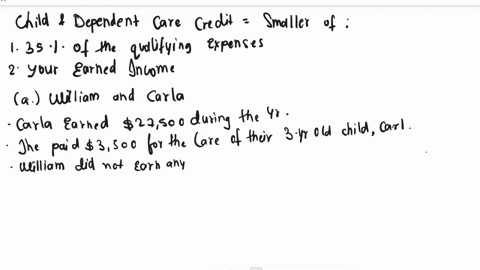 Child & Dependent Care Credit = Smaller of :
1. 35 % of the qualifying Expenses
2. Your Earned Income
(a.) William and Carla
. Carla Earned $27,500 during the Yr.
. The paid $3,500 for the Care of their 3-yr old child, Carl.
. William did not Earn any